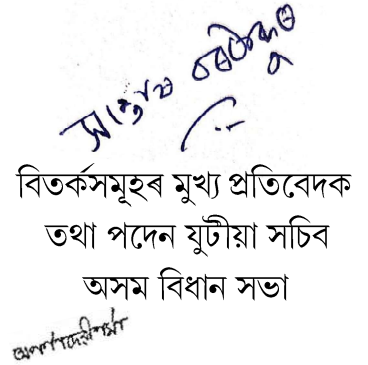 সন্তোষ বৰঠাকুৰ
বিতৰ্কসমূহৰ মুখ্য প্ৰতিবেদক
তথা পদেন যুটীয়া সচিব
অসম বিধান সভা